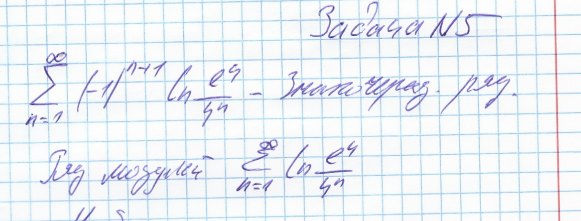 Задача N5
∑_{n=1}^{∞} (-1)^{n+1} ln e^4/4^n - Знакочеред. ряд.
Ряд модулей ∑_{n=1}^{∞} ln e^4/4^n